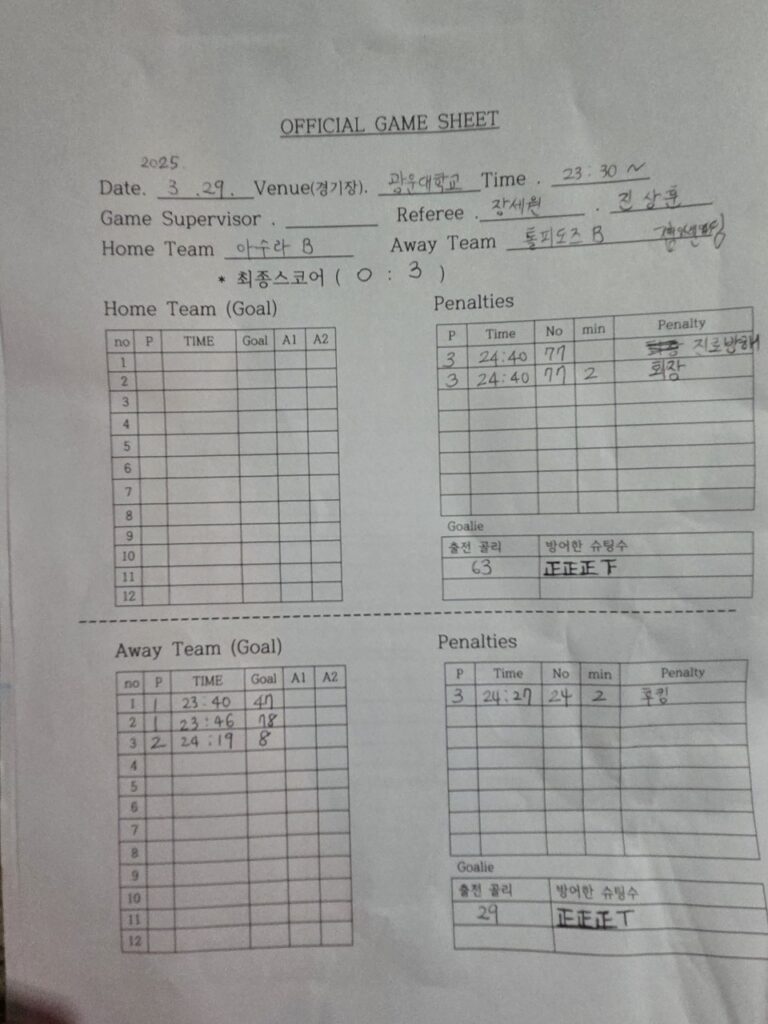 OFFICIAL GAME SHEET
2025
Date. 3 .29. Venue(경기장). 광운대학교 Time . 23:30 ~
Game Supervisor . Referee . 장세원 . 진상훈
Home Team 아수라 B Away Team 톨피도즈 B
* 최종스코어 ( 0 : 3 )
Home Team (Goal)
no P TIME Goal A1 A2
1
2
3
4
5
6
7
8
9
10
11
12
Penalties
P Time No min Penalty
3 24:40 77 진로방해
3 24:40 77 2 퇴장
Goalie
출전 골리 방어한 슈팅수
63 正正正下
Away Team (Goal)
no P TIME Goal A1 A2
1 1 23:40 47
2 1 23:46 78
3 2 24:19 8
4
5
6
7
8
9
10
11
12
Penalties
P Time No min Penalty
3 24:27 24 2 후킹
Goalie
출전 골리 방어한 슈팅수
29 正正正丅